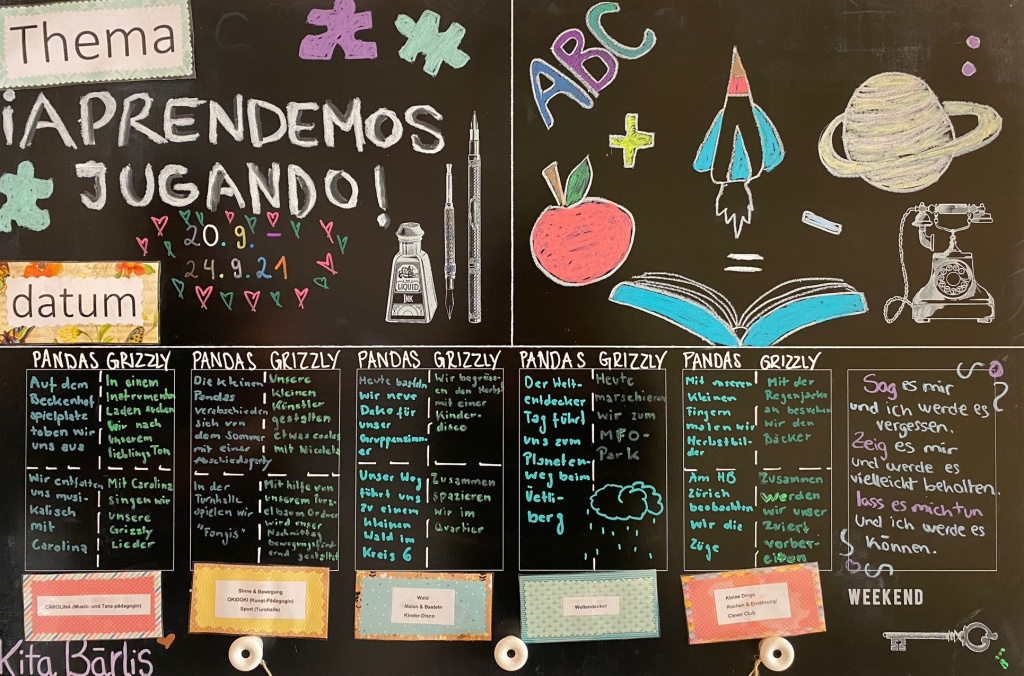 Thema
¡APRENDEMOS
JUGANDO!
20.9. -
24.9.21
datum
LIQUID
INK
ABC
+
=
PANDAS
Auf dem
Beckenhof
spielplatz
toben wir
uns aus
Wir entfalten
uns musi-
kalisch
mit
Carolina
GRIZZLY
In einem
Instrumenten
Laden suchen
Wir nach
unserem
lieblings Ton
Mit Carolina
singen wir
unsere
Grizzly
Lieder
CAROLINA (Music- und Tanz-pädagogin)
PANDAS
Die kleinen
Pandas
verabschieden
sich von
dem Sommer
mit einer
Abschiedsparty
In der
Turnhalle
spielen wir
"Fangis"
GRIZZLY
Unsere
kleinen
Künstler
gestalten
etwas cooles
mit Nicoleta
Mit hilfe von
unserem Purz
elbaum Ordner
wird unser
Nachmittag
bewegungsförd-
ernd gestaltet
Sinne & Bewegung
OKIDOKI (Kunst-Pädagogin)
Sport (Turnhalle)
PANDAS
Heute basteln
wir neue
Deko für
unser
Gruppenzimm-
er
Unser Weg
führt uns
zu einem
kleinen
Wald im
Kreis 6
GRIZZLY
Wir begrüss-
en den Herbst
mit einer
Kinder-
disco
Zusammen
spazieren
wir im
Quartier
Wald
Malen & Basteln
Kinder-Disco
PANDAS
Der Welt-
entdecker
Tag führt
uns zum
Planeten-
weg beim
Uetli-
berg
GRIZZLY
Heute
marschieren
wir zum
MFO-
Park
Weltendecker
PANDAS
Mit unseren
kleinen
Fingern
malen wir
Herbstbil-
der
Am HB
Zürich
beobachten
Wir die
Züge
GRIZZLY
Mit der
Regenjacke
an besuchen
wir den
Bäcker
Zusammen
werden
wir unser
Zvieri
vorber-
eiten
Kleine Dinge
Kochen & Ernährung/
Clever Club
Sag es mir
und ich werde es
vergessen.
Zeig es mir
und werde es
vielleicht behalten.
lass es mich tun
und ich werde es
können.
WEEKEND
Kita Bärlis